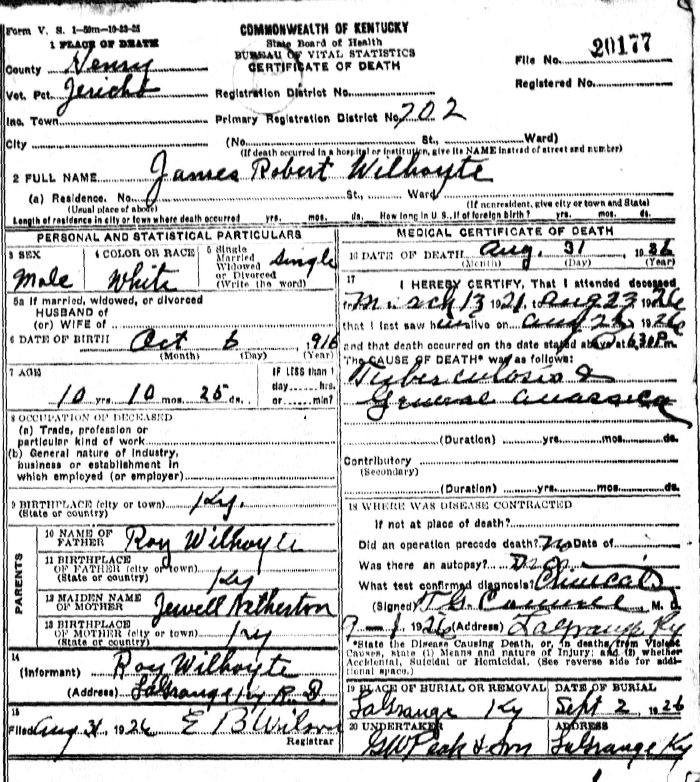 Form V. S. 1-50m-10-23-25
COMMONWEALTH OF KENTUCKY
State Board of Health
BUREAU OF VITAL STATISTICS
CERTIFICATE OF DEATH
1 PLACE OF DEATH
County Henry
Vot. Pct. Jericho
Inc. Town
City
File No. 20177
Registered No.
Registration District No.
Primary Registration District No. 702
(No. St., Ward)
(If death occurred in a hospital or institution, give its NAME instead of street and number)
2 FULL NAME James Robert Wilhoyte
(a) Residence. No. St., Ward
(Usual place of abode) (If nonresident, give city or town and State)
Length of residence in city or town where death occurred yrs. mos. ds. How long in U. S., if of foreign birth? yrs. mos. ds.
PERSONAL AND STATISTICAL PARTICULARS
3 SEX
Male
4 COLOR OR RACE
White
5 Single
Married
Widowed
or Divorced
(Write the word)
Single
5a If married, widowed, or divorced
HUSBAND of
(or) WIFE of
6 DATE OF BIRTH Oct 6 1916
(Month) (Day) (Year)
7 AGE
10 yrs. 10 mos. 25 ds.
IF LESS than 1
day hrs.
or min?
8 OCCUPATION OF DECEASED
(a) Trade, profession or
particular kind of work
(b) General nature of industry,
business or establishment in
which employed (or employer)
9 BIRTHPLACE (city or town) Ky.
(State or country)
PARENTS
10 NAME OF
FATHER Roy Wilhoyte
11 BIRTHPLACE
OF FATHER (city or town)
(State or country) Ky
12 MAIDEN NAME
OF MOTHER Jewell Netherton
13 BIRTHPLACE
OF MOTHER (city or town)
(State or country) Ky
14
(Informant) Roy Wilhoyte
(Address) LaGrange Ky R. D.
15
Filed Aug 31, 1926 E B Wilson
Registrar
MEDICAL CERTIFICATE OF DEATH
16 DATE OF DEATH Aug. 31 1926
(Month) (Day) (Year)
17
I HEREBY CERTIFY, That I attended deceased
from March 13 1921, to Aug 23 1926
that I last saw him alive on Aug 1926
and that death occurred on the date stated above at 6:30 P. m.
The CAUSE OF DEATH* was as follows:
Tuberculosis &
General
(Duration) yrs. mos. ds.
Contributory
(Secondary)
(Duration) yrs. mos. ds.
18 WHERE WAS DISEASE CONTRACTED
If not at place of death?
Did an operation precede death? No Date of
Was there an autopsy? No
What test confirmed diagnosis? Clinical
(Signed) T. G. M. D.
9-1 1926 (Address) LaGrange Ky
*State the Disease Causing Death, or, in deaths from Violent
Causes, state (1) Means and nature of Injury; and (2) whether
Accidental, Suicidal or Homicidal. (See reverse side for addi-
tional space.)
19 PLACE OF BURIAL OR REMOVAL
LaGrange Ky
DATE OF BURIAL
Sept 2, 1926
20 UNDERTAKER
GW Peak & Son
ADDRESS
LaGrange Ky